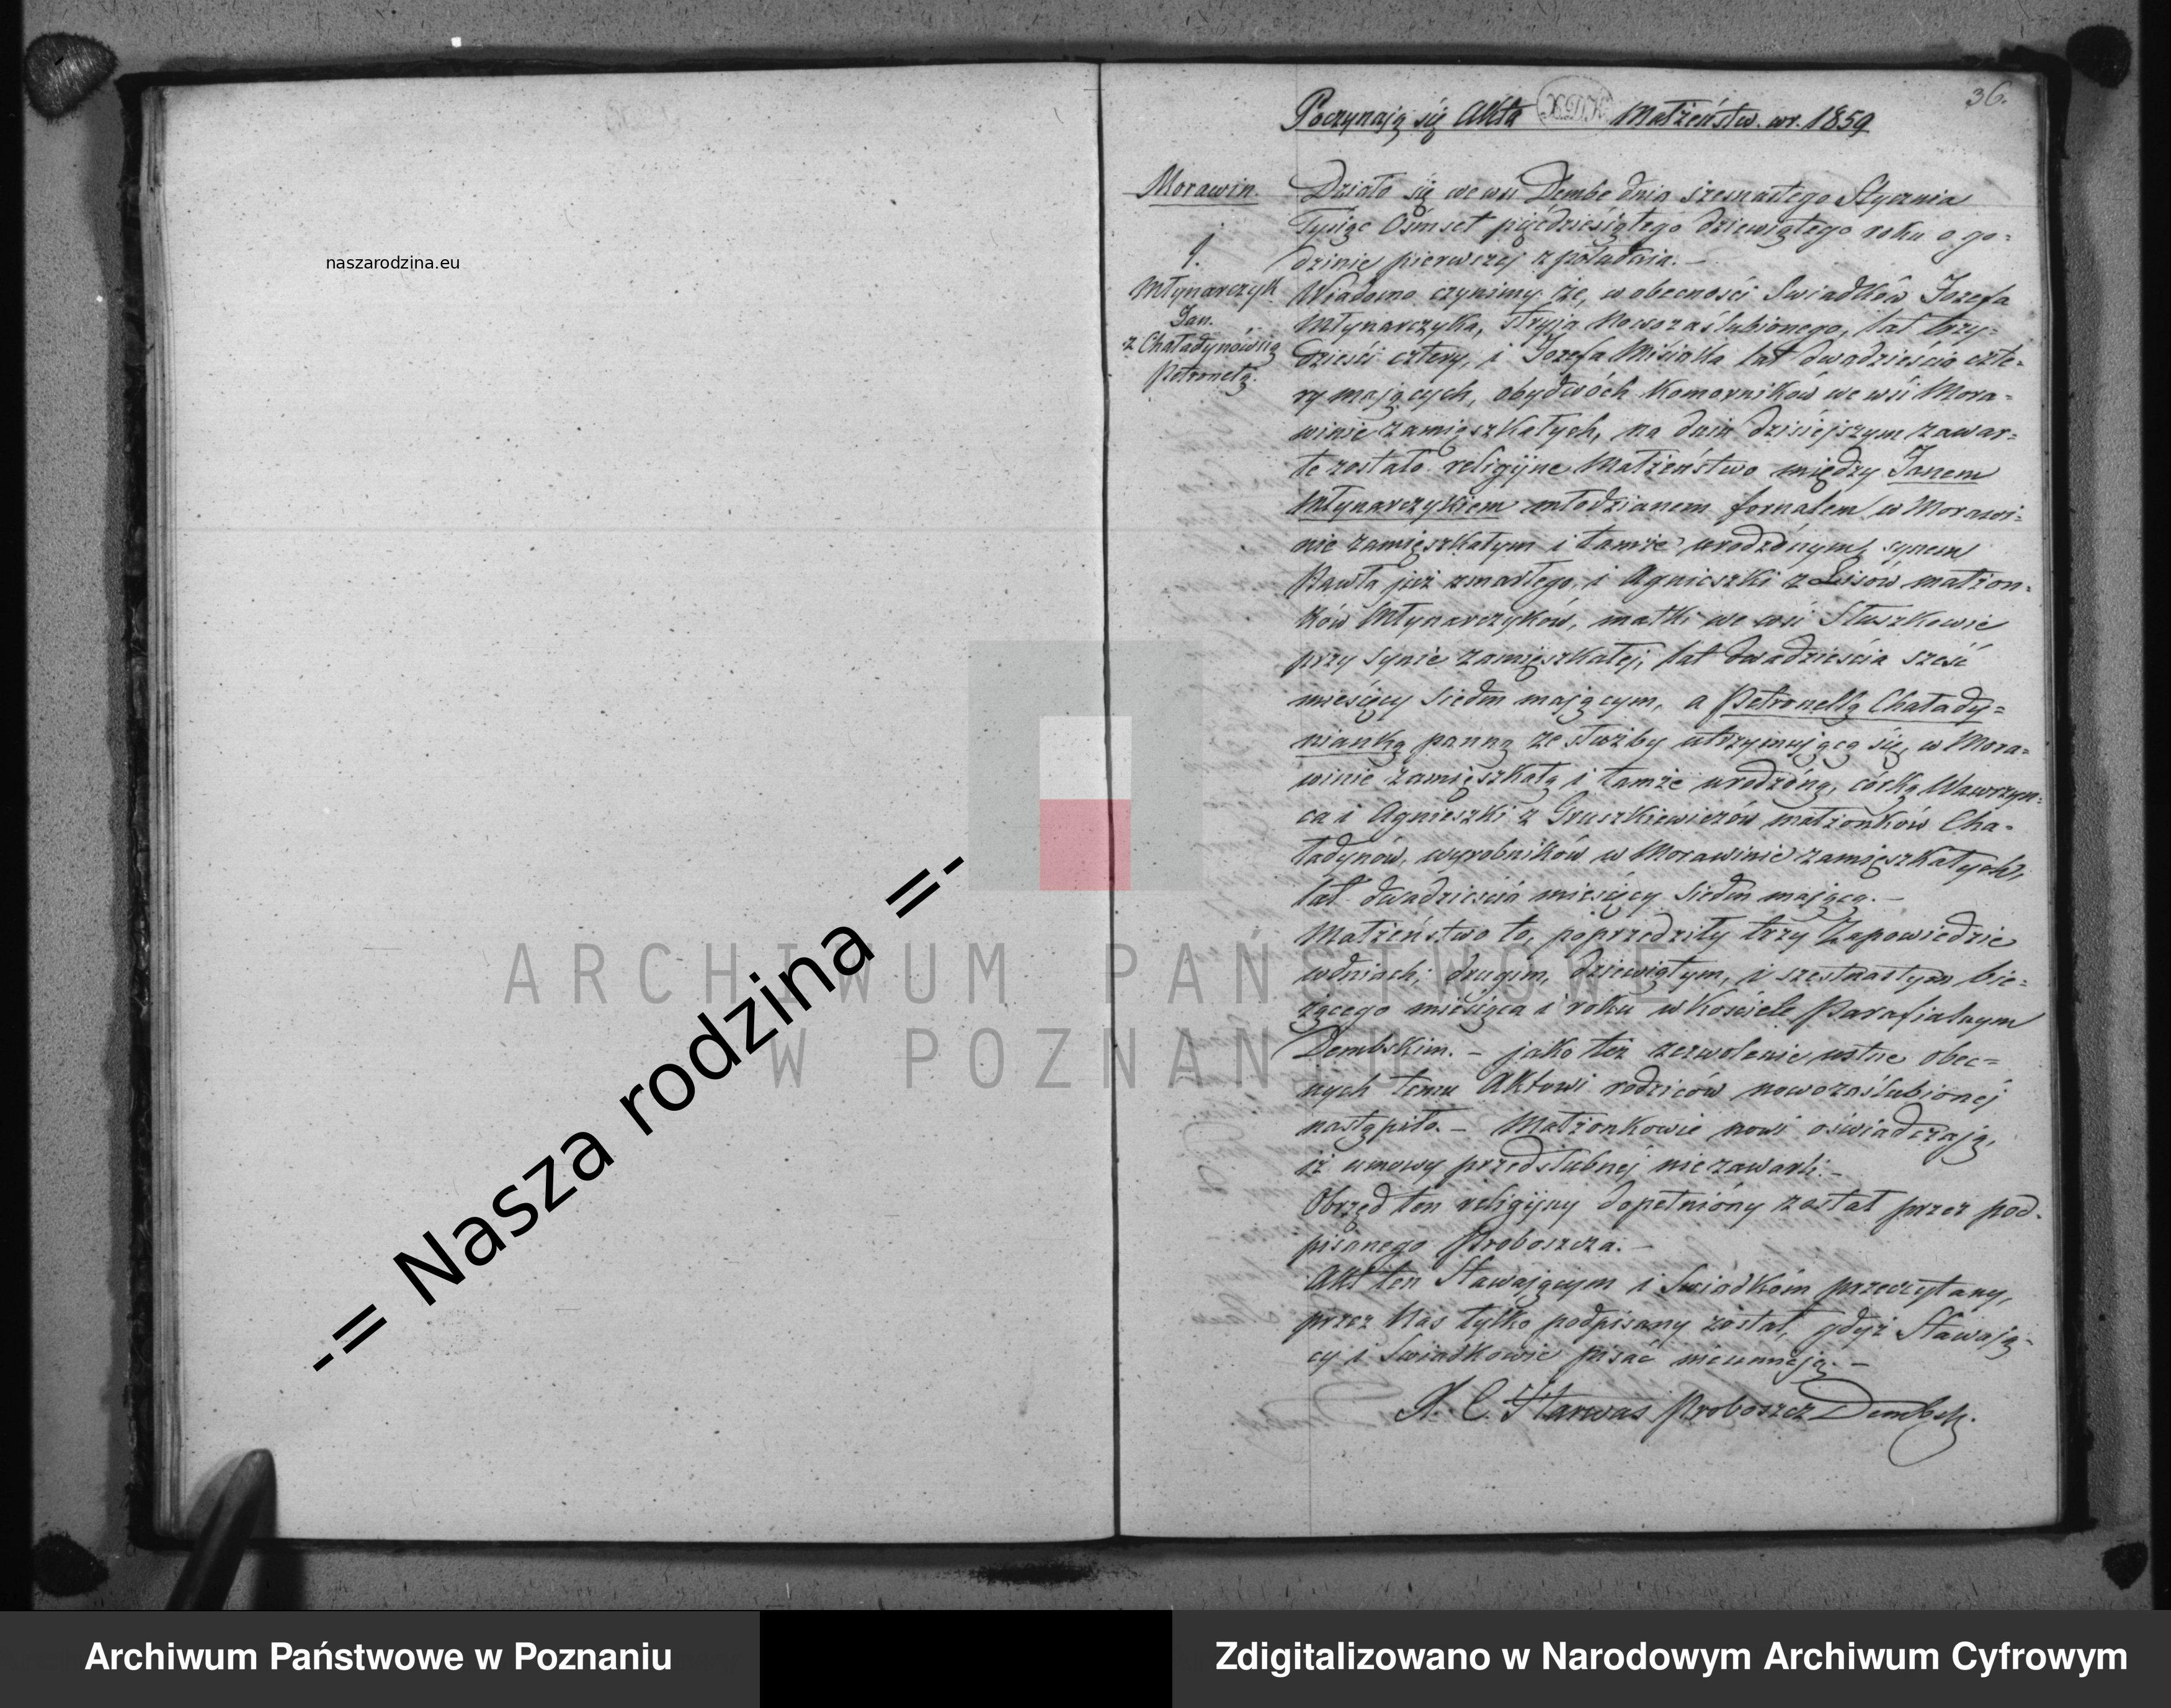 naszarodzina.eu
-= Nasza rodzina =-
36.
Poczynają się Akta Małżeństw. wr. 1859
Morawin.
1.
Młynarczyk
Jan.
z Chaładynówną
Petronelą.
Działo się we wsi Dembe dnia szesnastego Stycznia
Tysiąc Ośmset pięćdziesiątego dziewiątego roku o go=
dzinie pierwszej z południa. –
Wiadomo czynimy że, w obecności Swiadków Jozefa
Młynarczyka, stryja Nowozaślubionego, lat trzy=
dzieści cztery, i Jozefa Misiaka lat dwadzieścia czte=
ry mających, obydwóch Komorników we wsi Mora=
winie zamięszkałych, na dniu dzisiejszym zawar=
te zostało religijne Małżeństwo między Janem
Młynarczykiem młodzianem fornalem w Morawi=
nie zamięszkałym i tamże urodzónym, synem
Pawła już zmarłego, i Agnieszki z Lisów małżon=
ków Młynarczyków, matki we wsi Stuszkowie
przy synie zamięszkałej, lat dwadzieścia sześć
miesięcy siedm mającym, a Petronellą Chałady=
nianką panną ze służby utrzymującą się, w Mora=
winie zamięszkałą i tamże urodzóną, córką Wawrzyń=
ca i Agnieszki z Gruszkiewiczów małżonków Cha=
ładynów, wyrobników w Morawinie zamięszkałych,
lat dwadzieścia miesięcy siedm mającą. –
Małżeństwo to, poprzedziły trzy Zapowiedzie
w dniach; drugim, dziewiątym, i szesnastym bie=
żącego miesiąca i roku w Kościele Parafialnym
Dembskim. – jako też zezwolenie ustne obec=
nych temu Aktowi rodziców nowozaślubionej
nastąpiło. – Małżonkowie nowi oświadczają,
iż umowy przedślubnej niezawarli. –
Obrzęd ten religijny dopełnióny został przez pod=
pisanego Proboszcza. –
Akt ten Stawającym i Świadkóm przeczytany,
przez Nas tylko podpisany został, gdyż Stawają=
cy i Swiadkowie pisać nieumieją. –
X. C. Starwas Proboszcz Dembsk.
ARCHIWUM PAŃSTWOWE
W POZNANIU
Archiwum Państwowe w Poznaniu
Zdigitalizowano w Narodowym Archiwum Cyfrowym